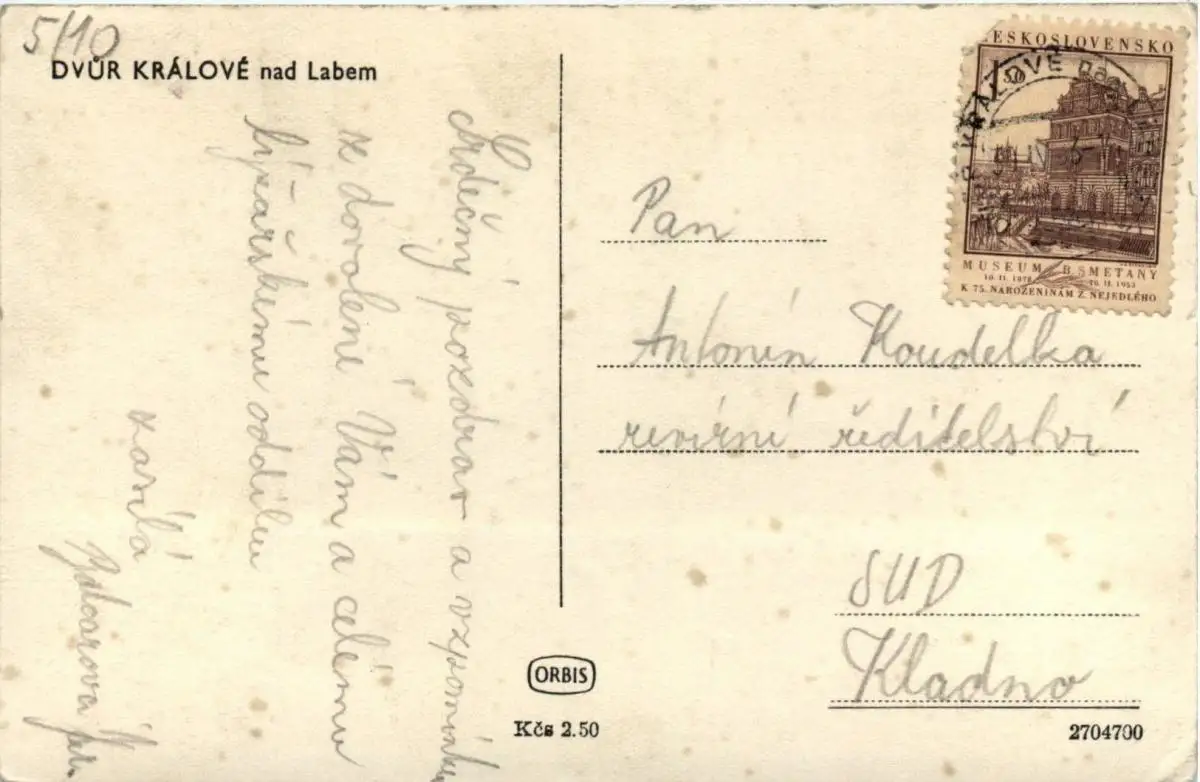 5/10
DVŮR KRÁLOVÉ nad Labem
Srdečný pozdrav a vzpomínku
z dovolené Vám a celému
lyžařskému oddílu
zasílá
ČESKOSLOVENSKO
1,50
KRÁLOVÉ nad
MUSEUM B. SMETANY
10. II. 1878 10. II. 1953
K 75. NAROZENINÁM Z. NEJEDLÉHO
Pan
Antonín Koudelka
revírní ředitelství
SUD
Kladno
ORBIS
Kčs 2.50
2704700